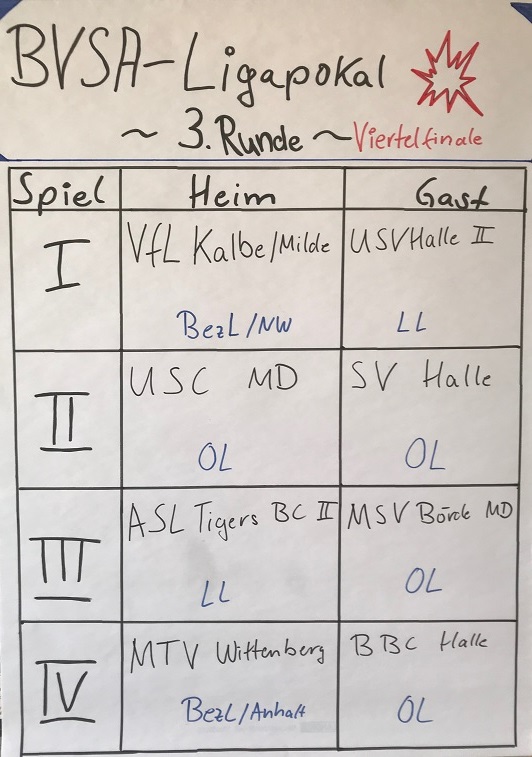 BVSA-Ligapokal
~ 3. Runde ~ Viertelfinale
Spiel Heim Gast
I VfL Kalbe/Milde USV Halle II
BezL/NW LL
II USC MD SV Halle
OL OL
III ASL Tigers BC II MSV Börde MD
LL OL
IV MTV Wittenberg BBC Halle
BezL/Anhalt OL